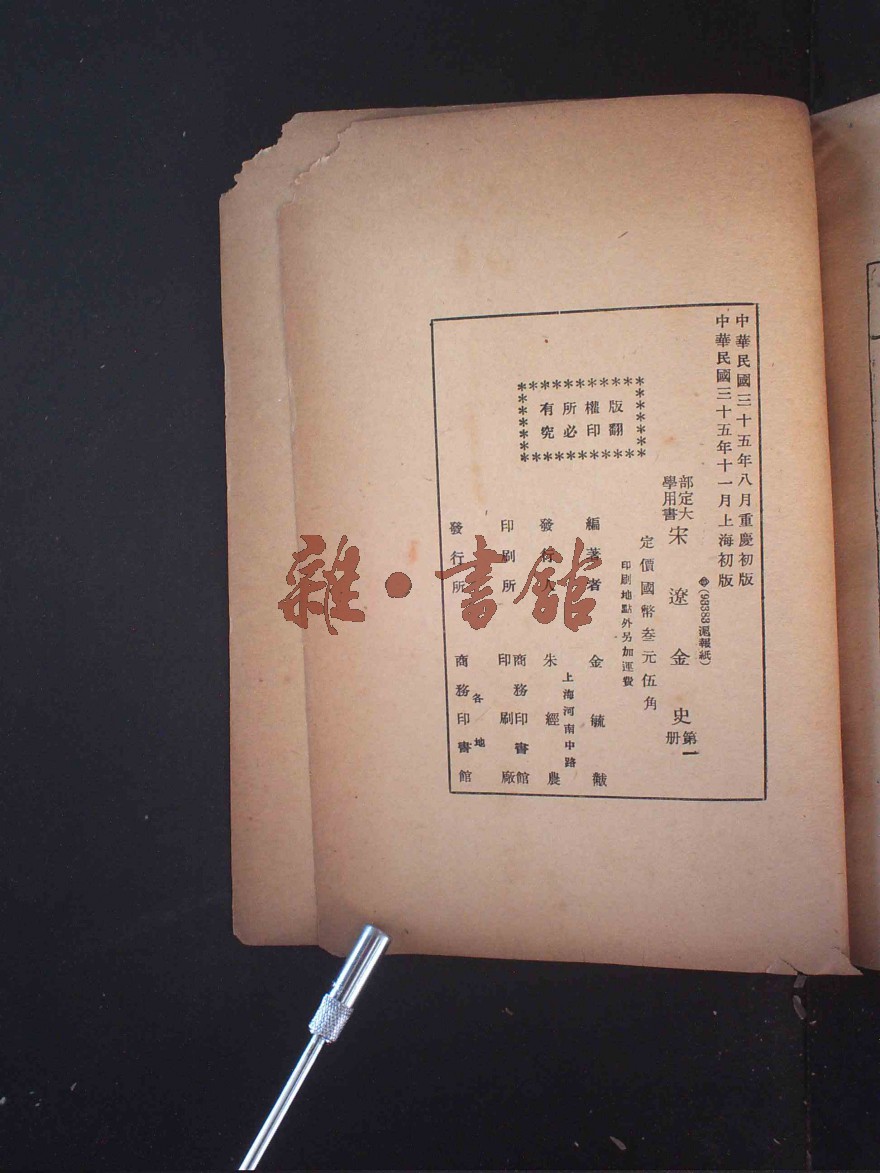 中華民國三十五年八月重慶初版
中華民國三十五年十一月上海初版
(98383滬報紙)
部定大學用書 宋遼金史 第一册
定價國幣叁元伍角
印刷地點外另加運費
版權所有
翻印必究
編著者 金毓黻
上海河南中路
發行人 朱經農
印刷所 商務印書館印刷廠
發行所 各地商務印書館
雜·書館